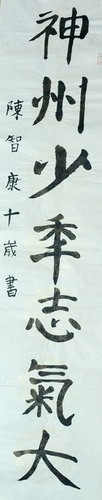 神州少年志氣大
陳智康十歲書